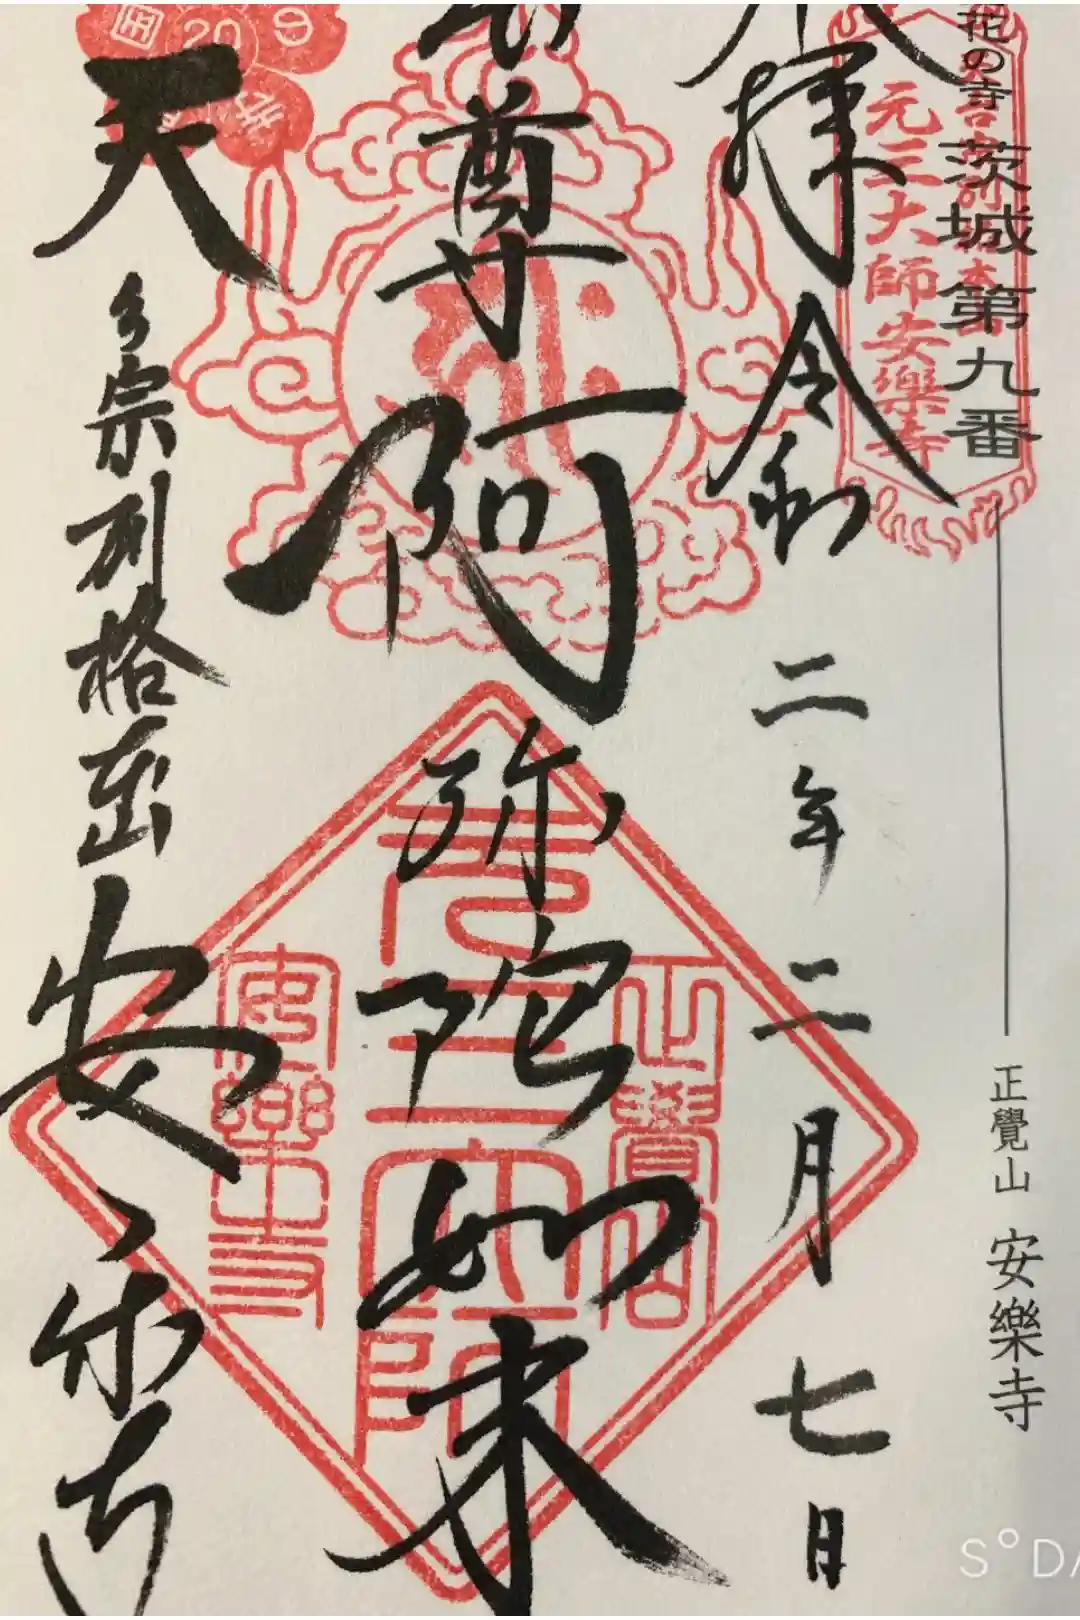 花の寺 茨城第九番
正覺山 安樂寺
元三大師安樂寺
拝 令和二年二月七日
尊 阿弥陀如来
天 宗別格 安楽寺
正覺山
元三大師
安樂寺
20
S°DA